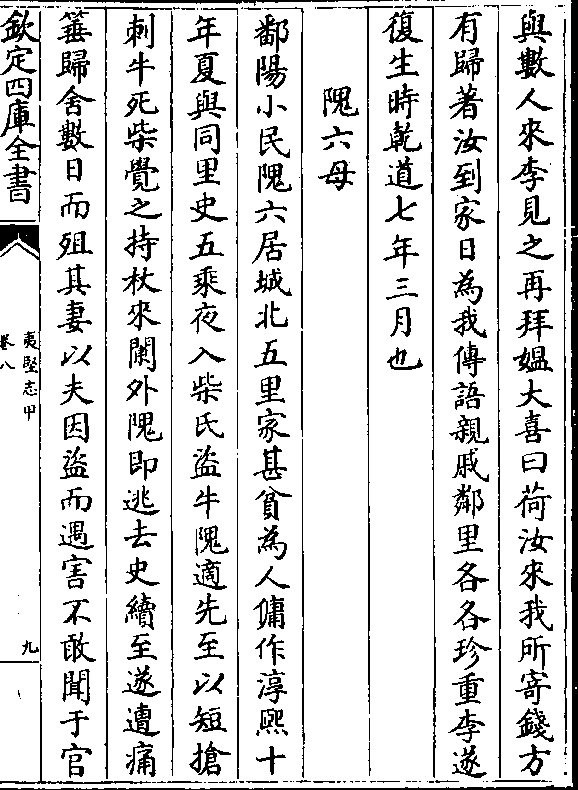 與數人來李見之再拜媼大喜曰荷汝來我所寄錢方
有歸著汝到家日為我傳語親戚鄰里各各珍重李遂
復生時乾道七年三月也
隗六母
鄱陽小民隗六居城北五里家甚貧為人傭作淳熙十
年夏與同里史五乘夜入柴氏盜牛隗適先至以短搶
刺牛死柴覺之持杖來闌外隗即逃去史續至遂遭痛
箠歸舍數日而殂其妻以夫因盜而遇害不敢聞于官
欽定四庫全書
夷堅志甲
卷八
九